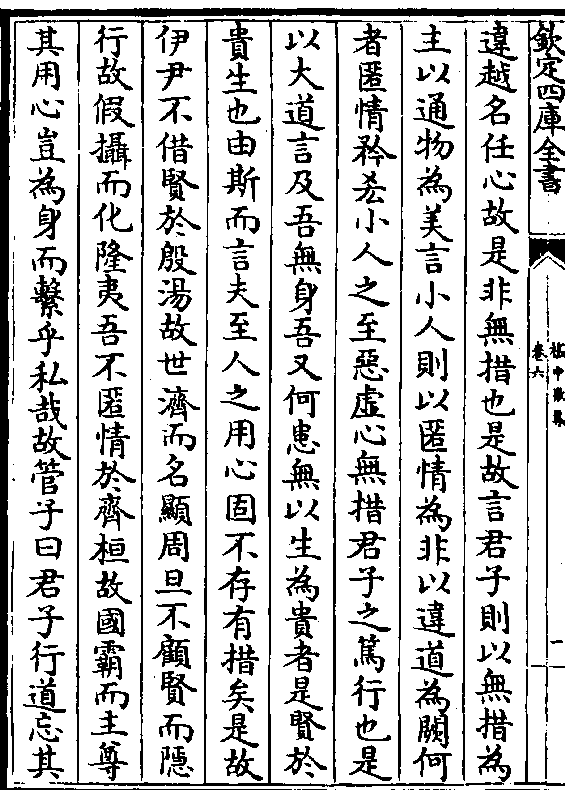 欽定四庫全書
嵇中散集
卷六
一
違越名任心故是非無措也是故言君子則以無措為
主以通物為美言小人則以匿情為非以違道為闕何
者匿情矜吝小人之至惡虛心無措君子之篤行也是
以大道言及吾無身吾又何患無以生為貴者是賢於
貴生也由斯而言夫至人之用心固不存有措矣是故
伊尹不借賢於殷湯故世濟而名顯周旦不顧賢而隱
行故假攝而化隆夷吾不匿情於齊桓故國霸而主尊
其用心豈為身而繫乎私哉故管子曰君子行道忘其